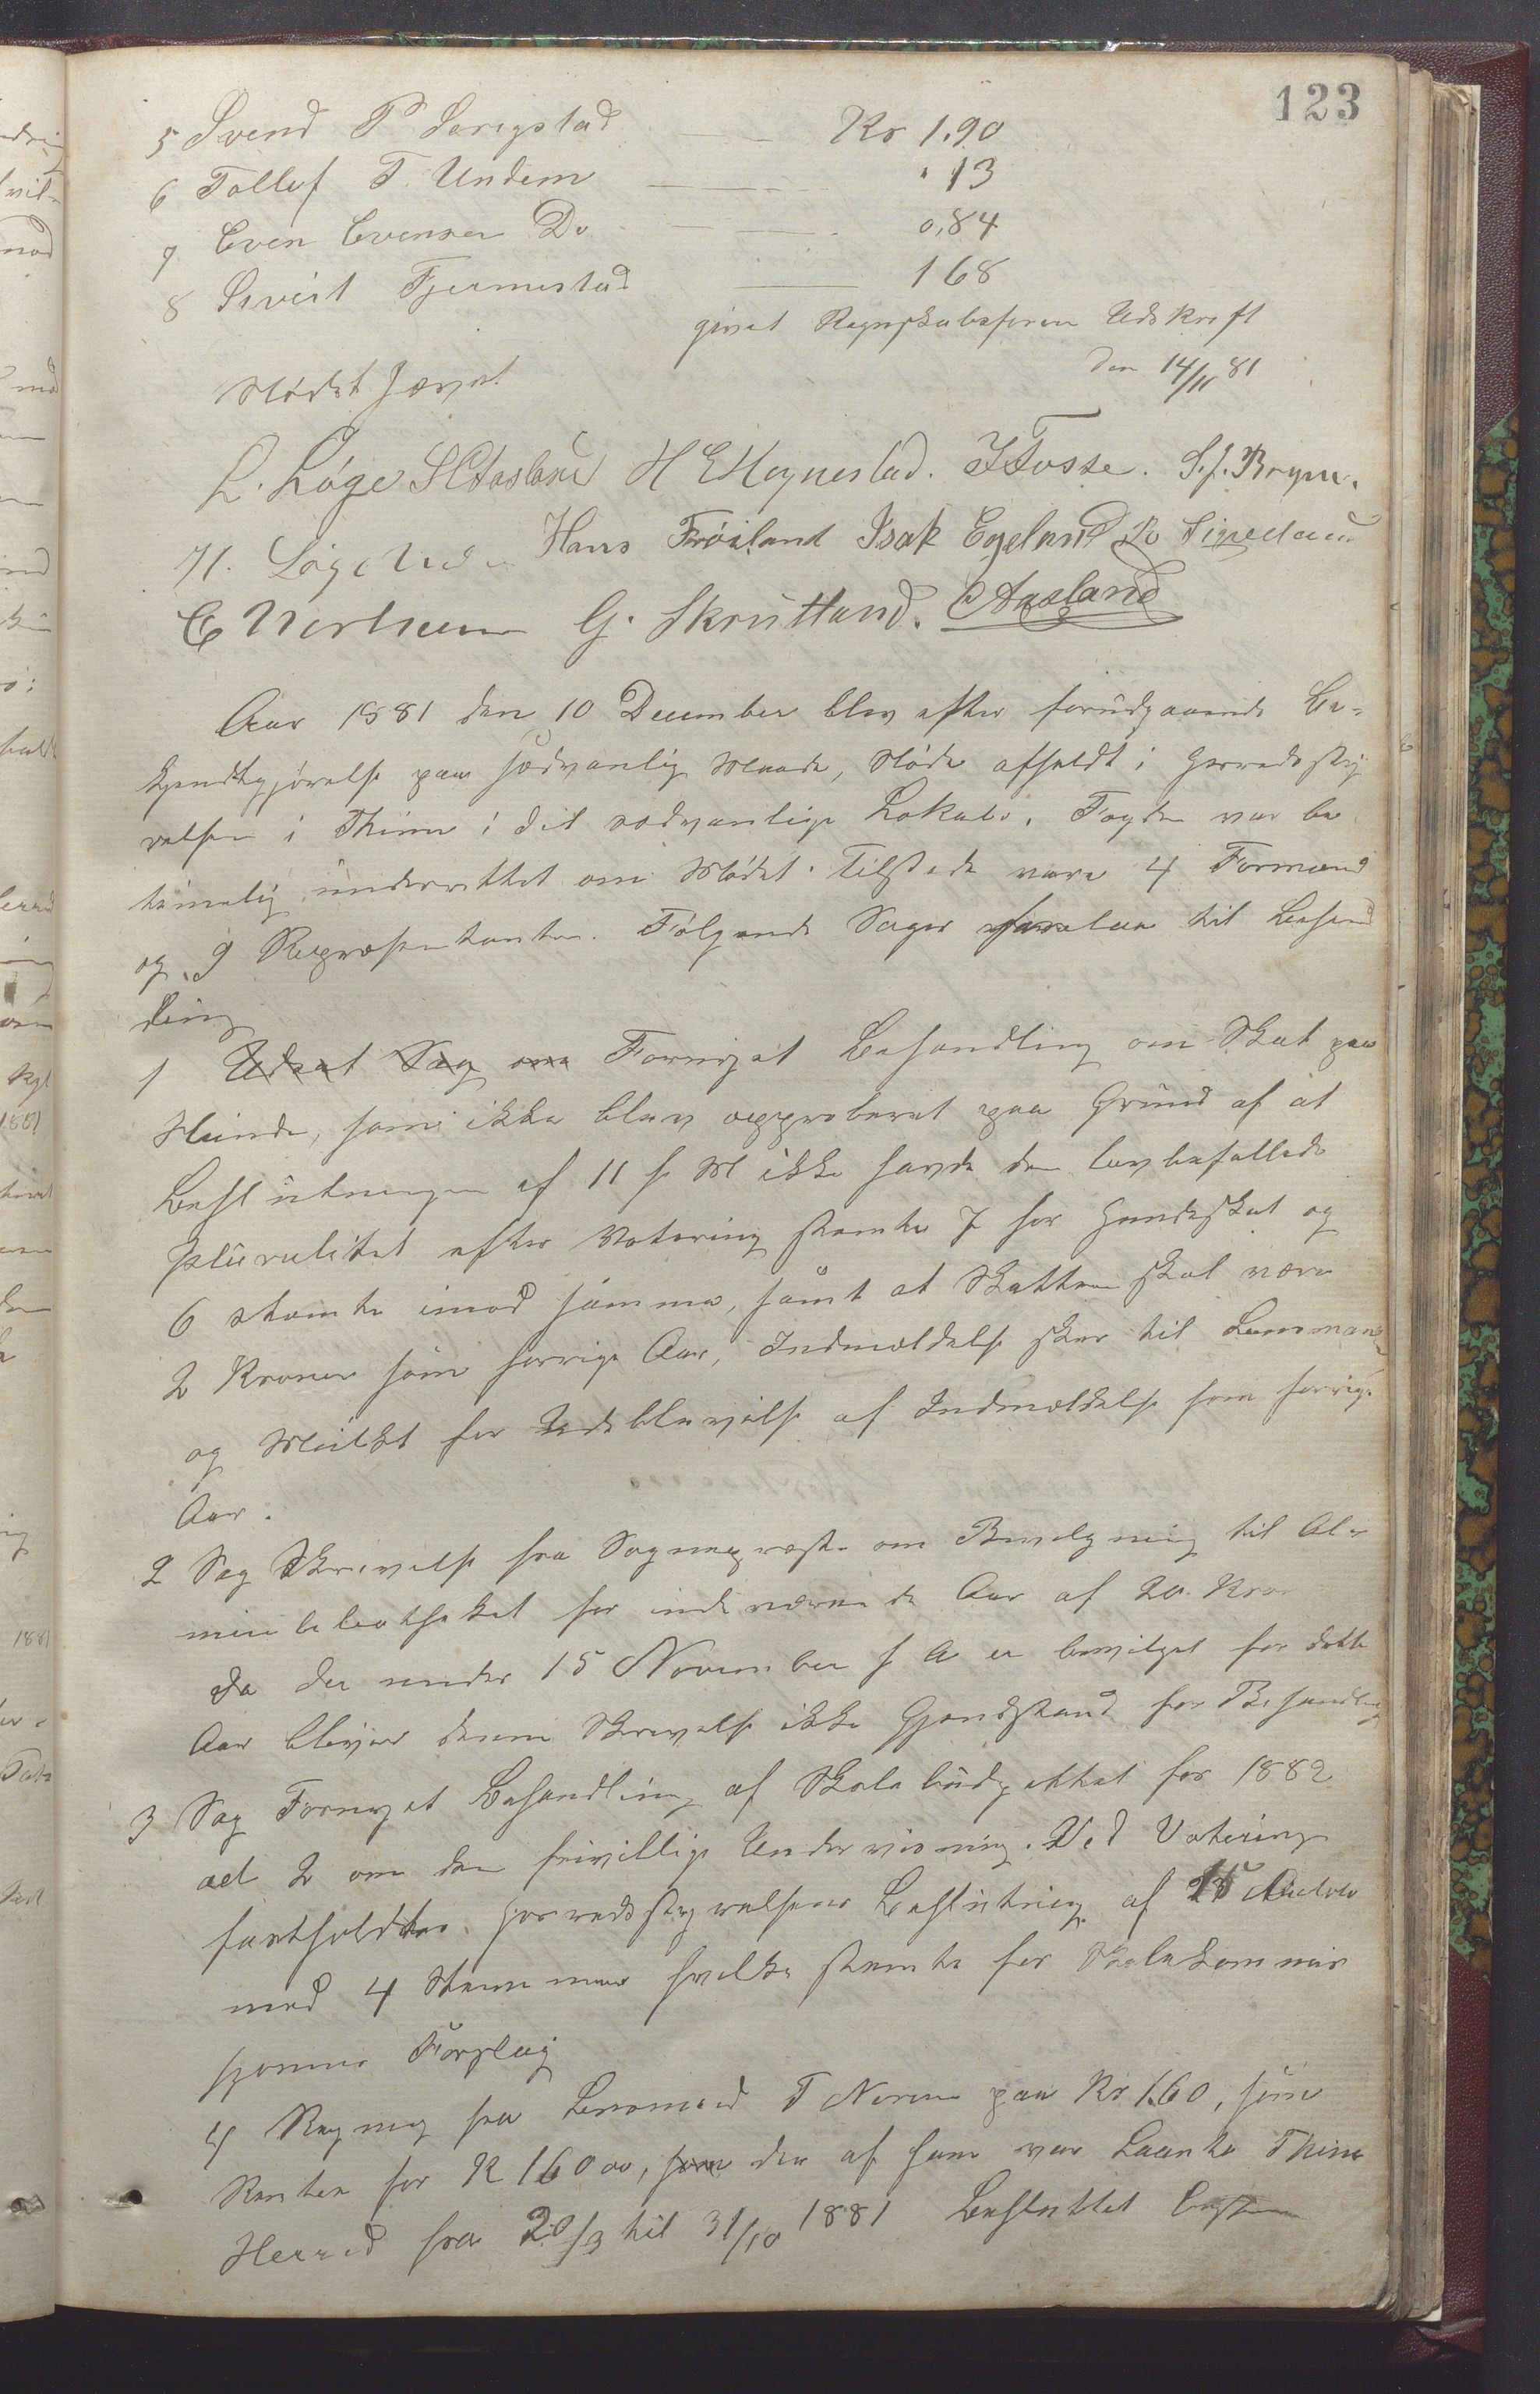 123
5 Svend P Serigstad Kr 1.90
6 Tollef T. Undem " 13
7 Even Evensen Do 0,84
8 Sivert Fjermestad 168
givet Regnskabsføren Udskrift
den 14/11 81
Mødet hævet
L. Løge S C Aasland H E Høynestad. I Fosse. S. J. Bryne.
H. Løge Hans Frøiland Isak Egeland
E Norheim G. Skrutland. Aasland
Aar 1881 den 10 December blev efter forudgaaende Be-
kjendtgjørelse paa sædvanlig Maade, Møde afholdt i Herredssty
relsen i Thime i det sædvanlige Lokale. Fogden var be
timelig underrettet om Mødet. Tilstede vare 4 Formænd
og 9 Repræsentanter. Følgende Sager forelaa til Behand
ling
1 Udsat Sag om Fornyet Behandling om Skat paa
Hunde, som ikke blev approberet paa Grund af at
Beslutningen af 11 f M ikke havde den lovbefalede
Pluralitet efter Votering stemte 7 for Hundeskat og
6 stemte imod samme, samt at Skatten skal være
2 Kroner som forrige Aar, Indmeldelse sker til Lensmanden
og Mulkt for Udeblivelse af Indmeldelse som forrige
Aar.
2 Sag Skrivelse fra Sognepresten om Bevilgning til Al-
muebibliotheket for indeværende Aar af 20 Kroner
da der under 15 November f A er bevilget for dette
Aar bliver denne Skrivelse ikke Gjenstand for Behandling
3 Sag Fornyet Behandling af Skolebudgettet for 1882
ad 2 om den frivillige Undervisning. Ved Votering
fastholdtes Herredsstyrelsens Beslutning af 15
med 4 Stemmer hvilke stemte for Skolekommis
sjonens Forslag
4 Regning fra Lensmand T Nærem paa Kr 1.60, som
Renter for K 160 00, som den af ham var Laante Thime
Herred fra 20/9 til 31/10 1881 Besluttet